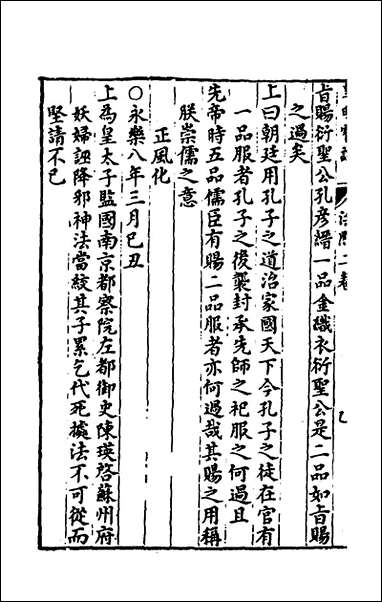 旨賜衍聖公孔彥縉一品金織衣衍聖公是二品如旨賜
之過矣
上曰朝廷用孔子之道治家國天下今孔子之徒在官有
一品服者孔子之後襲封承先師之祀服之何過且
先帝時五品儒臣有賜二品服者亦何過哉其賜之用稱
朕崇儒之意
正風化
○永樂八年三月己丑
上為皇太子監國南京都察院左都御史陳瑛啓蘇州府
妖婦誣降邪神法當絞其子累乞代死據法不可從而
堅請不已